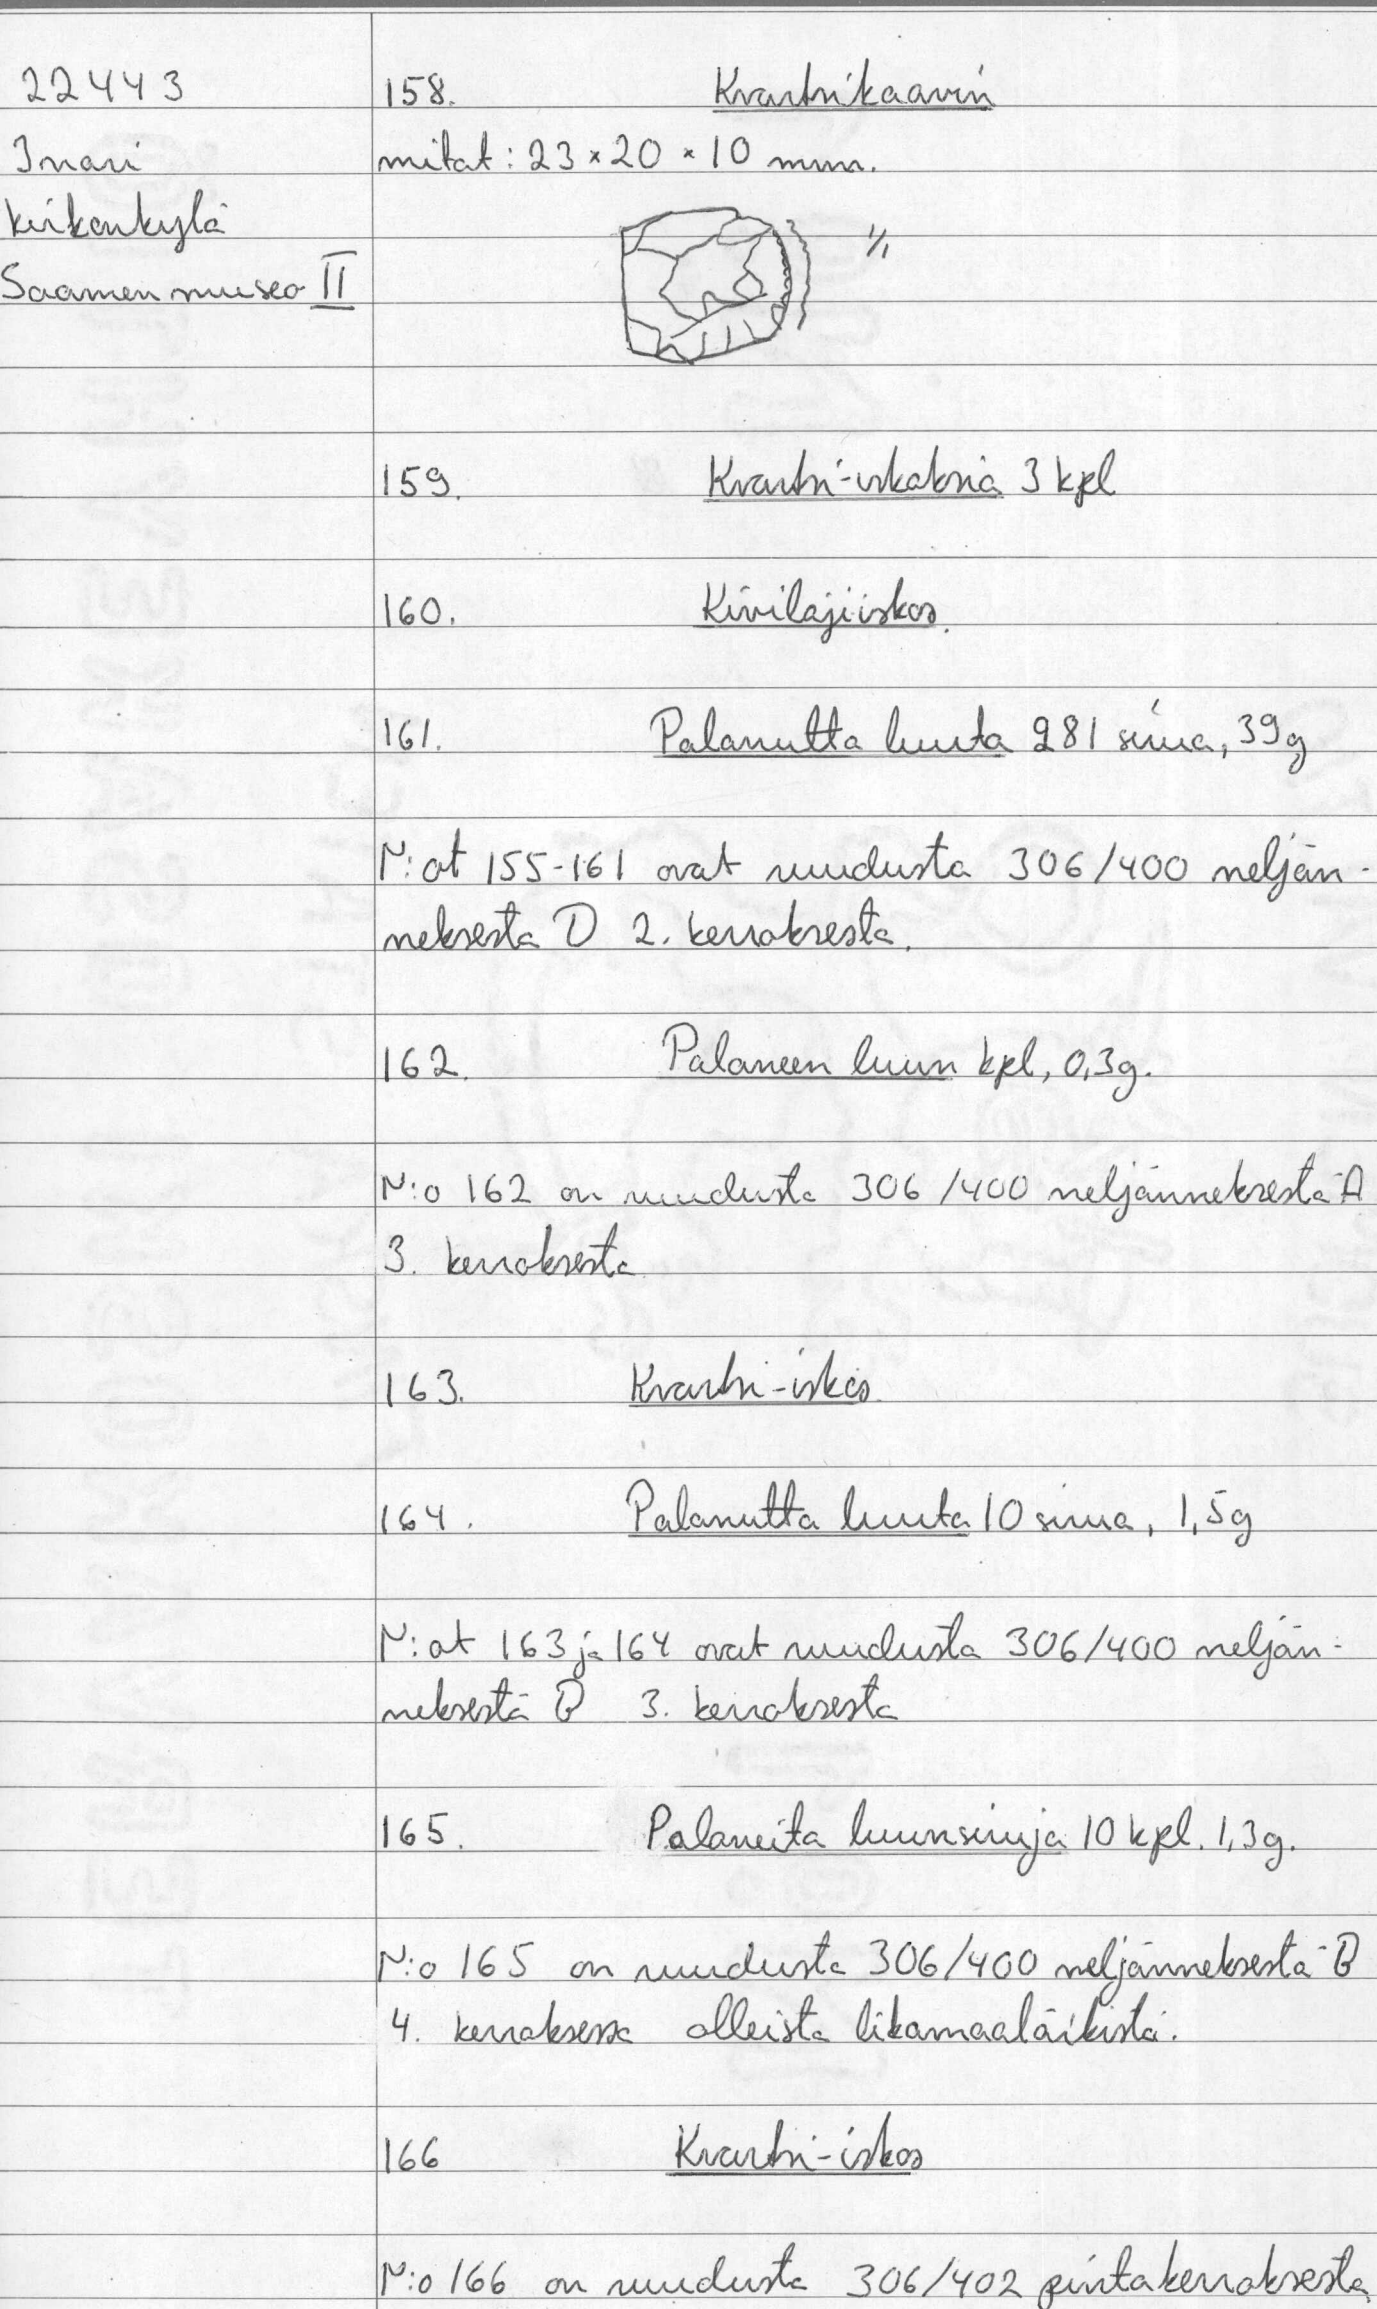 22443
Inari
kirkonkylä
Saamen museo II
158. Kvartsikaavin
mitat: 23 × 20 × 10 mm.
1/1
159. Kvartsi-iskoksia 3 kpl
160. Kivilaji iskos.
161. Palanutta luuta 281 sirua, 39g
N:ot 155-161 ovat ruudusta 306/400 neljän-
neksestä D 2. kerroksesta.
162. Palaneen luun kpl, 0,3g.
N:o 162 on ruudusta 306/400 neljänneksestä A
3. kerroksesta
163. Kvartsi-iskos
164. Palanutta luuta 10 sirua, 1,5g
N:ot 163 ja 164 ovat ruudusta 306/400 neljän-
neksestä B 3. kerroksesta
165. Palaneita luunsiruja 10 kpl. 1,3g.
N:o 165 on ruudusta 306/400 neljänneksestä B
4. kerroksessa olleista likamaaläikistä.
166 Kvartsi-iskos
N:o 166 on ruudusta 306/402 pintakerroksesta